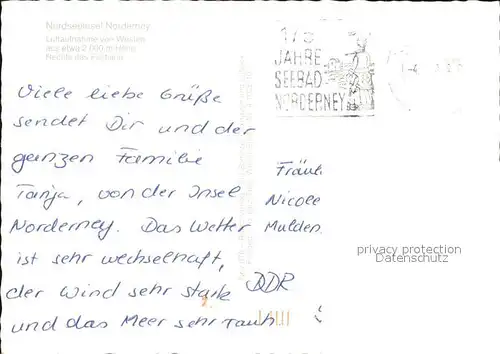 Nordseeinsel Norderney
Luftaufnahme von Westen
aus etwa 2 000 m Höhe
175
JAHRE
SEEBAD
NORDERNEY
Viele liebe Grüße
sendet Dir und der
ganzen Familie
Tanja, von der Insel
Norderney. Das Wetter
ist sehr wechselhaft,
der Wind sehr stark
und das Meer sehr rauh
Fräul
Nicole
Mulden
DDR
privacy protection
Datenschutz